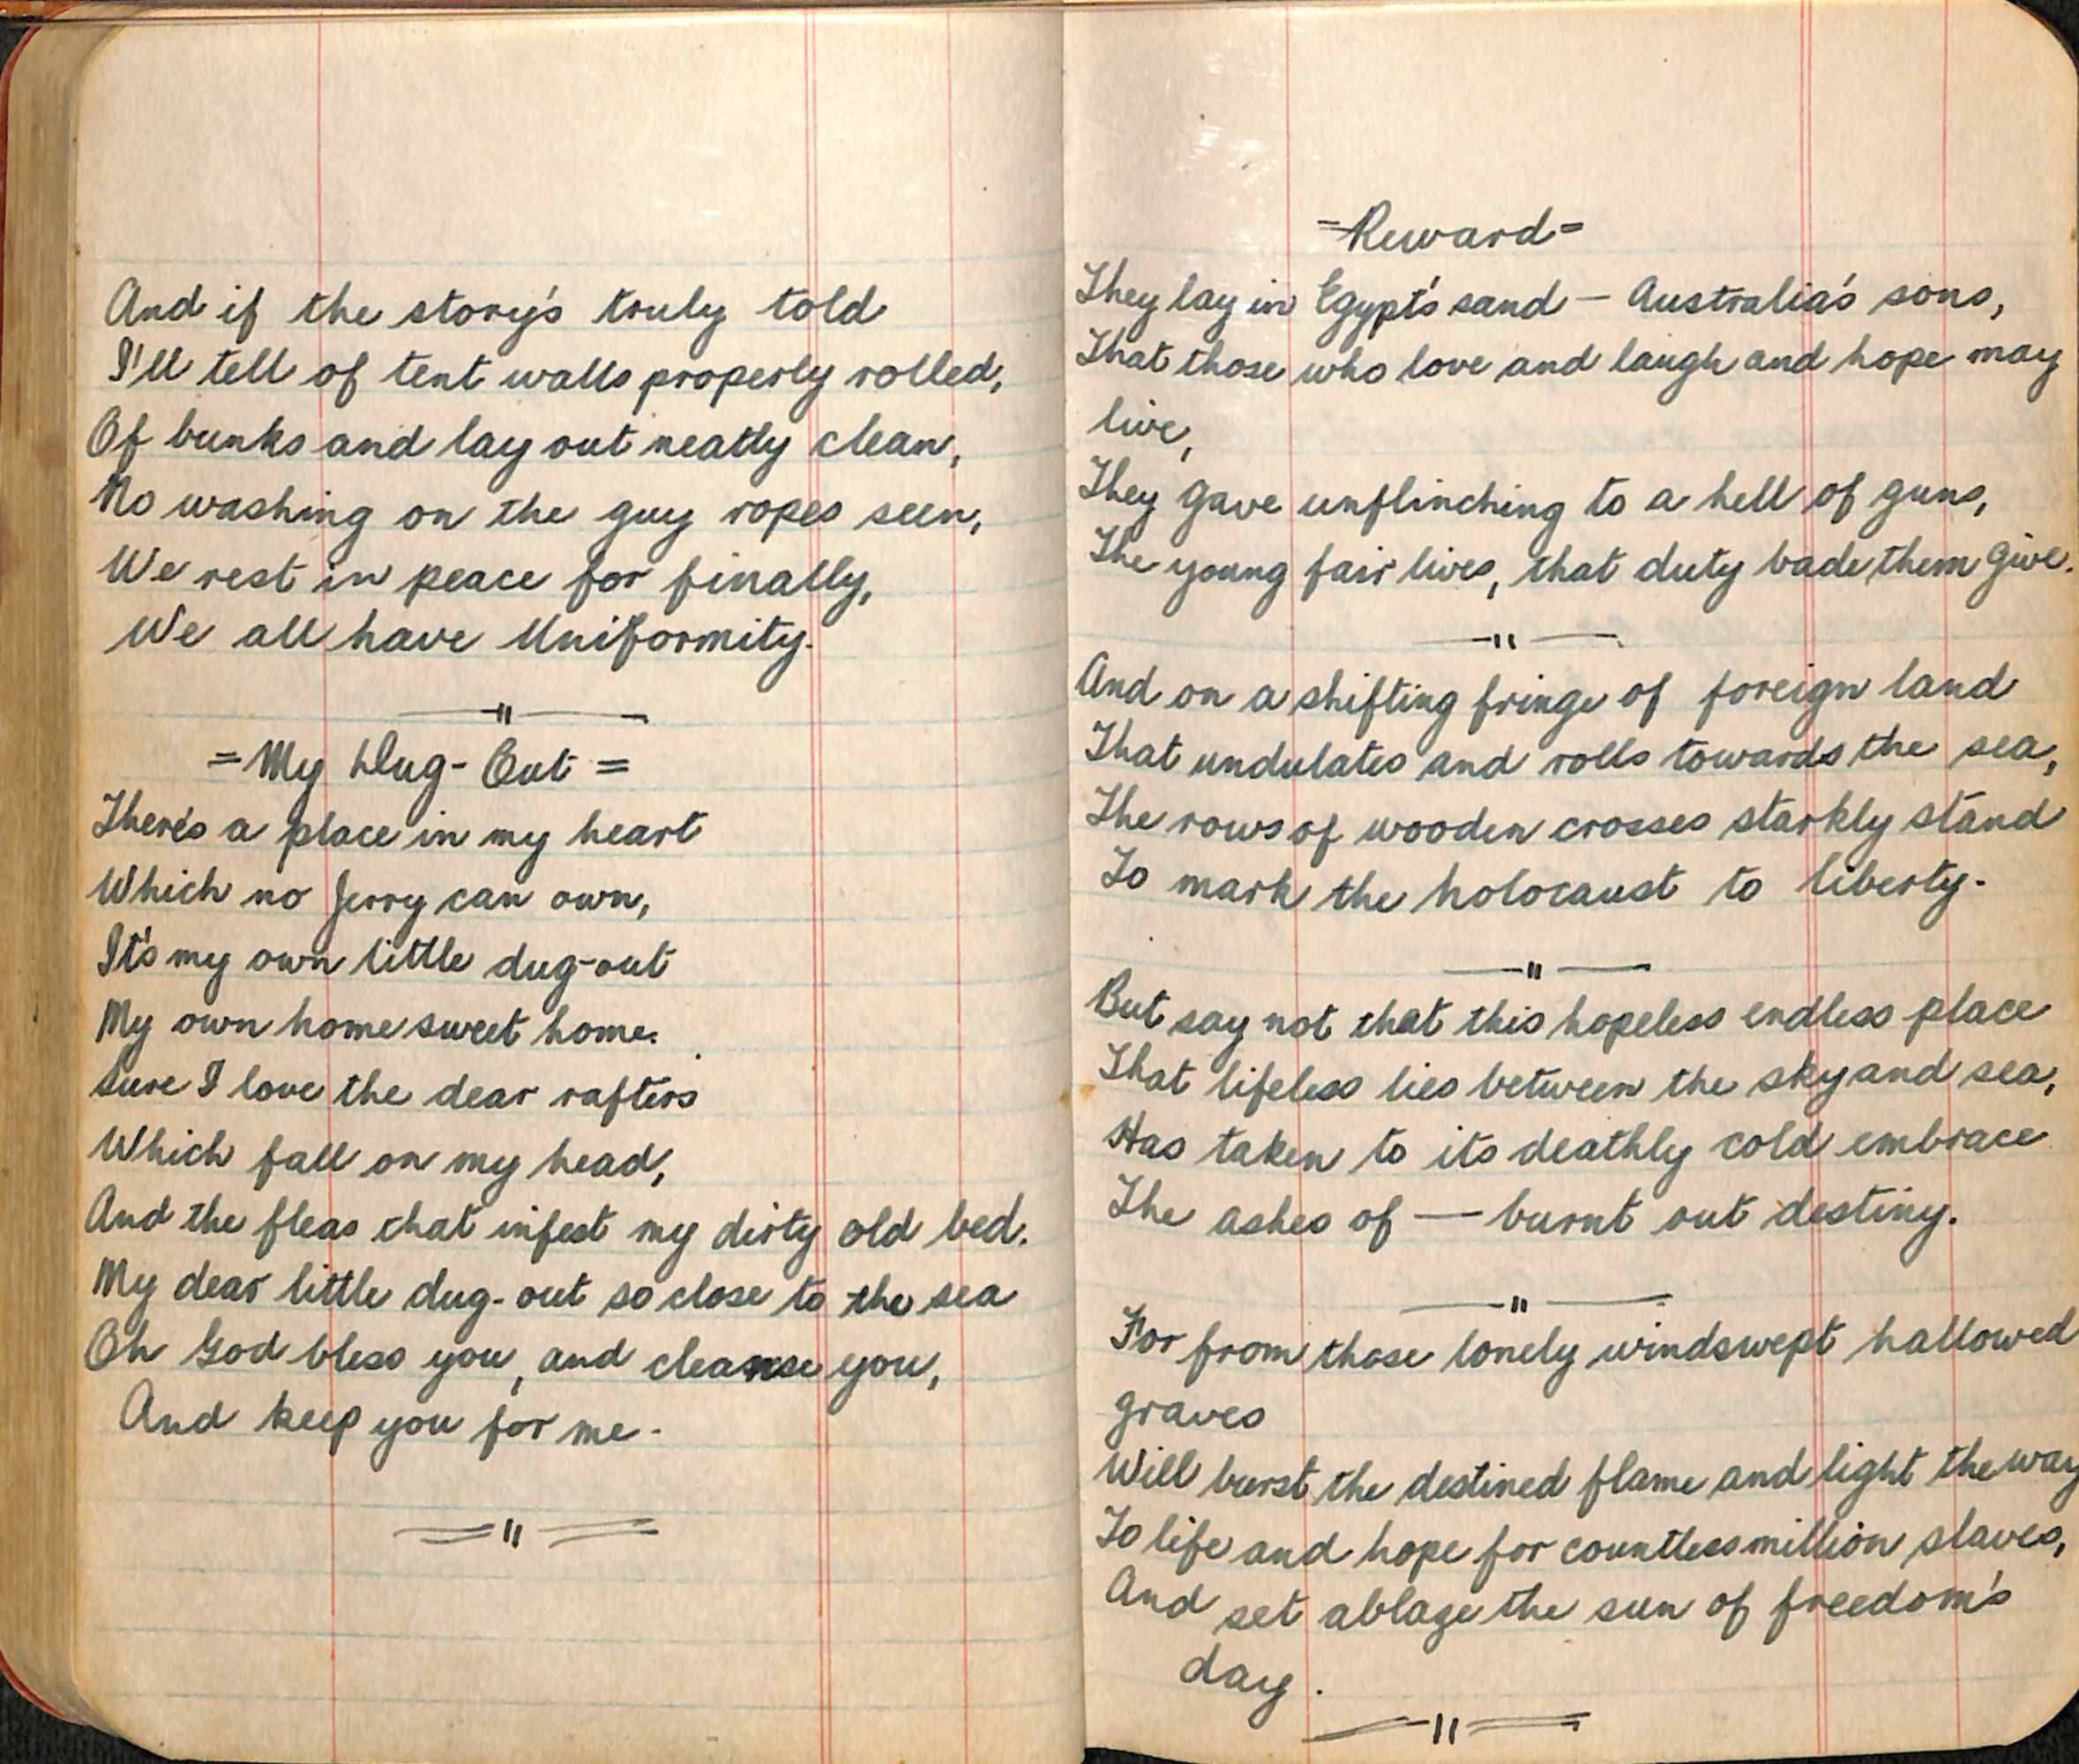 And if the story's truly told
I'll tell of tent walls properly rolled,
Of bunks and lay out neatly clean,
No washing on the guy ropes seen,
We rest in peace for finally,
We all have Uniformity.
— " —
= My Dug-Out =
There's a place in my heart
Which no Jerry can own,
It's my own little dug-out
My own home sweet home.
Sure I love the dear rafters
Which fall on my head,
And the fleas that infest my dirty old bed.
My dear little dug-out so close to the sea
Oh God bless you, and cleanse you,
And keep you for me.
= " =
=Reward=
They lay in Egypt's sand — Australia's sons,
That those who love and laugh and hope may
live,
They gave unflinching to a hell of guns,
The young fair lives, that duty bade them give.
— " —
And on a shifting fringe of foreign land
That undulates and rolls towards the sea,
The rows of wooden crosses starkly stand
To mark the holocaust to liberty.
— " —
But say not that this hopeless endless place
That lifeless lies between the sky and sea,
Has taken to its deathly cold embrace
The ashes of — burnt out destiny.
— " —
For from those lonely windswept hallowed
graves
Will burst the destined flame and light the way
To life and hope for countless million slaves,
And set ablaze the sun of freedom's
day.
= " =